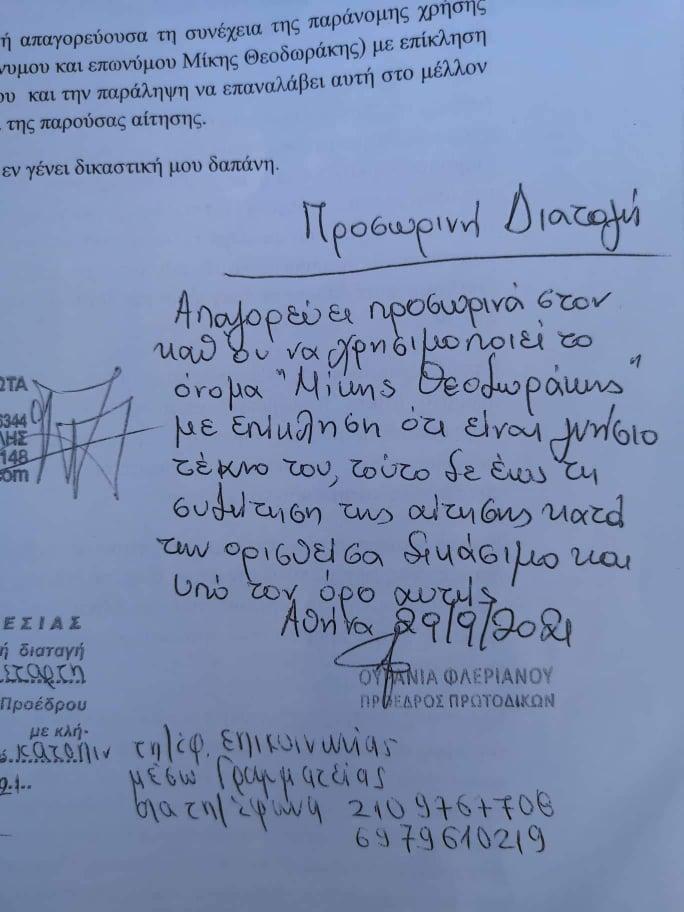 ή απαγορεύουσα τη συνέχεια της παράνομης χρήσης
νυμου και επωνύμου Μίκης Θεοδωράκης) με επίκληση
ου και την παράληψη να επαναλάβει αυτή στο μέλλον
της παρούσας αίτησης.
εν γένει δικαστική μου δαπάνη.
Προσωρινή Διαταγή
Απαγορεύει προσωρινά στον
καθ'ου να χρησιμοποιεί το
όνομα "Μίκης Θεοδωράκης"
με επίκληση ότι είναι γνήσιο
τέκνο του, τούτο δε έως τη
συζήτηση της αίτησης κατά
την ορισθείσα δικάσιμο και
υπό τον όρο αυτής
Αθήνα 29/9/2021
ΟΥΡΑΝΙΑ ΦΛΕΡΙΑΝΟΥ
ΠΡΟΕΔΡΟΣ ΠΡΩΤΟΔΙΚΩΝ
ΩΤΑ
6344
ΛΗΣ
148
com
ΕΣΙΑΣ
ή διαταγή
Προέδρου
με κλή-
κατόπιν τηλεφ. επικοινωνίας
μέσω Γραμματείας
στα τηλέφωνα 210 9767708
6979610219